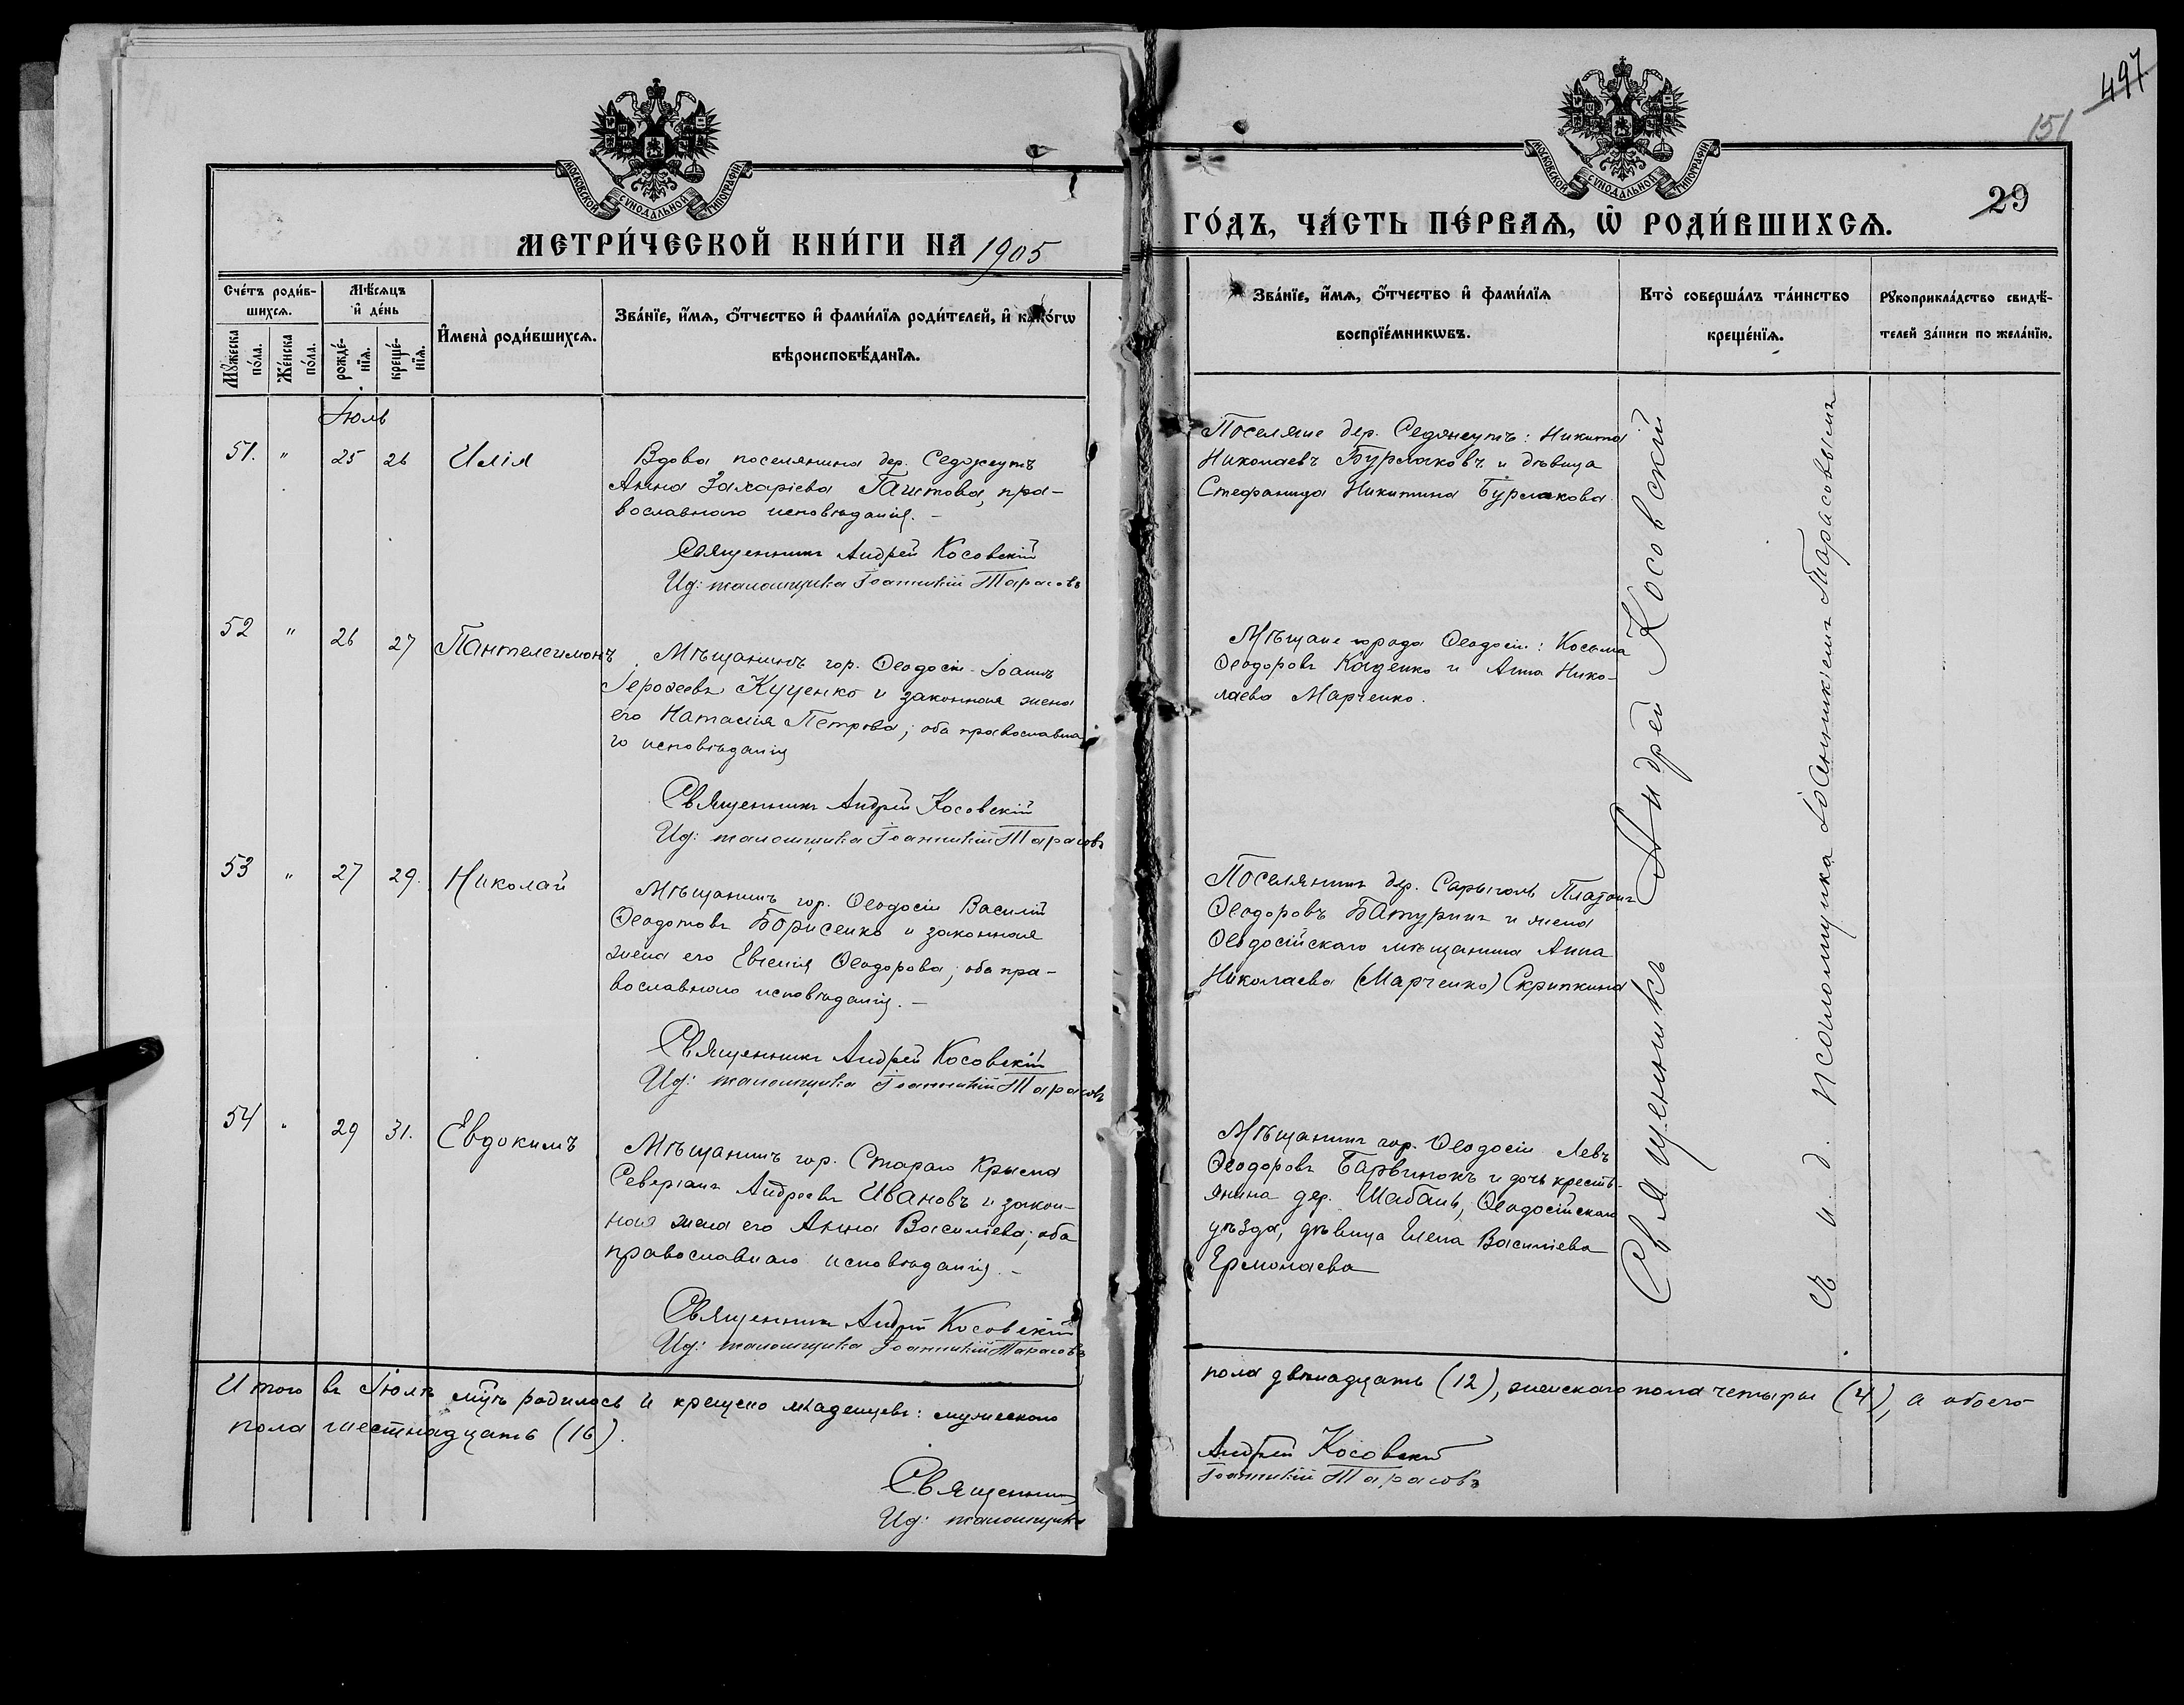 497
151
29
МОСКОВСКОЙ СѴНОДАЛЬНОЙ ТИПОГРАФІИ
МОСКОВСКОЙ СѴНОДАЛЬНОЙ ТИПОГРАФІИ
МЕТРИ́ЧЕСКОЙ КНИ́ГИ НА 1905
ГО́ДЪ, ЧА́СТЬ ПЕ́РВАѦ, Ѡ҆ РОДИ́ВШИХСѦ.
Сче́тъ роди́в-
шихсѧ.
Мꙋ́жеска по́ла.
Же́нска по́ла.
Мѣ́сѧцъ
и҆ де́нь
рожде́-
нїѧ.
креще́-
нїѧ.
И҆мена̀ роди́вшихсѧ.
Зва́нїе, и҆́мѧ, ѻ҆́тчество и҆ фами́лїѧ роди́телей, и҆ како́гѡ
вѣроисповѣ́данїѧ.
Зва́нїе, и҆́мѧ, ѻ҆́тчество и҆ фами́лїѧ
воспрїе́мникѡвъ.
Кто̀ соверша́лъ та́инство
креще́нїѧ.
Рꙋкоприкла́дство свидѣ́-
телей за́писи по жела́нїю.
Іюль
51. " 25 26 Илія
Вдова поселянина дер. Седжеутъ
Анна Захаріева Гаитова, пра-
вославнаго исповѣданія. –
Священникъ Андрей Косовскій
Ид: псаломщика Іоанникій Тарасовъ
Поселяне дер. Седжеутъ: Никита
Николаевъ Бурлаковъ и дѣвица
Стефанида Никитина Бурлакова.
52 " 26 27 Пантелеимонъ
Мѣщанинъ гор. Ѳеодосіи Іоаннъ
Іероѳеевъ Куценко и законная жена
его Наталія Петрова; оба православна
го исповѣданія
Священникъ Андрей Косовскій
Ид: псаломщика Іоанникій Тарасовъ
Мѣщане города Ѳеодосіи: Косьма
Ѳеодоровъ Каденко и Анна Нико-
лаева Марченко.
53 " 27 29. Николай
Мѣщанинъ гор. Ѳеодосіи Василій
Ѳеодотовъ Борисенко и законная
жена его Евгенія Ѳеодорова; оба пра-
вославнаго исповѣданія. –
Священникъ Андрей Косовскій
Ид: псаломщика Іоанникій Тарасовъ
Поселянинъ дер. Сарыголь Платонъ
Ѳеодоровъ Батуринъ и жена
Ѳеодосійскаго мѣщанина Анна
Николаева (Марченко) Скрипкина
54 " 29 31. Евдокимъ
Мѣщанинъ гор. Стараго Крыма
Северіанъ Андреевъ Ивановъ и закон-
ная жена его Анна Василіева; оба
православнаго исповѣданія. –
Священникъ Андрей Косовскій
Ид: псаломщика Іоанникій Тарасовъ
Мѣщанинъ гор. Ѳеодосіи Левъ
Ѳеодоровъ Барвинокъ и дочь кресть-
янина дер. Шабань, Ѳеодосійскаго
уѣзда, дѣвица Елена Василіева
Ермолаева
Священникъ Андрей Косовскій
съ и. д. псаломщика Іоанникіемъ Тарасовымъ
Итого въ Іюлѣ мцѣ родилось и крещено младенцевъ: мужескаго
пола двѣнадцать (12), женскаго пола четыре (4), а обоего
пола шестнадцать (16).
Священникъ
Андрей Косовскій
Ид: псаломщика
Іоанникій Тарасовъ